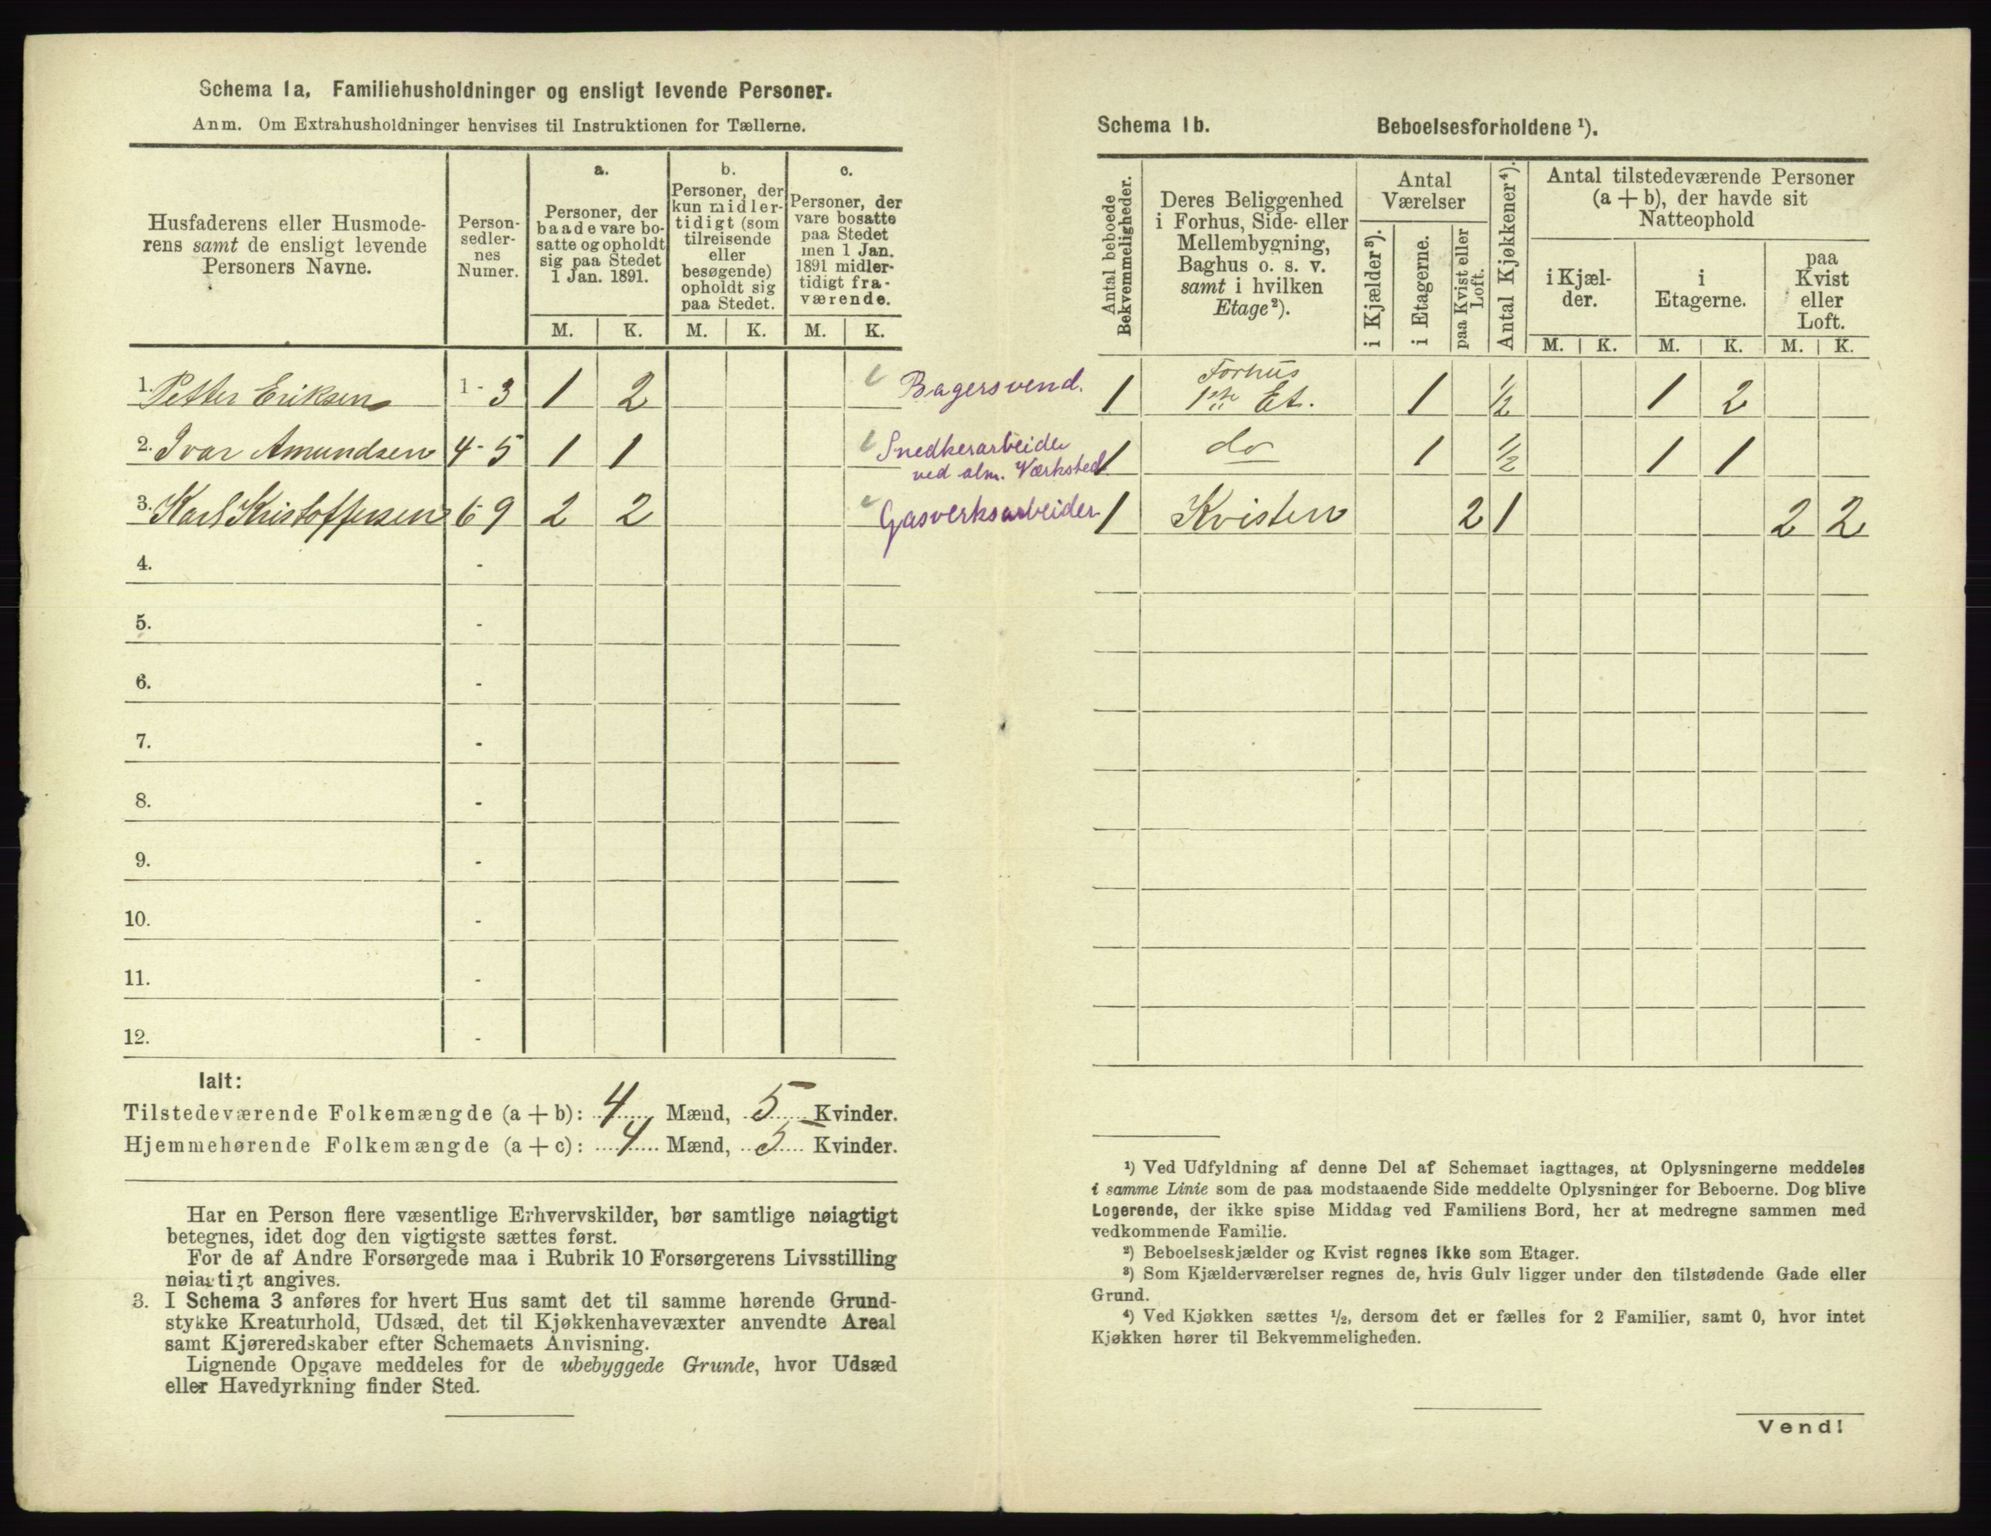 Schema 1a. Familiehusholdninger og ensligt levende Personer.
Anm. Om Extrahusholdninger henvises til Instruktionen for Tællerne.
Husfaderens eller Husmode-
rens samt de ensligt levende
Personers Navne.
Person-
sedler-
nes
Numer.
a.
Personer, der
baade vare bo-
satte og opholdt
sig paa Stedet
1 Jan. 1891.
b.
Personer, der
kun midler-
tidigt (som
tilreisende
eller
besøgende)
opholdt sig
paa Stedet.
c.
Personer, der
vare bosatte
paa Stedet
men 1 Jan.
1891 midler-
tidigt fra-
værende.
M. K. M. K. M. K.
1. Petter Eriksen 1 - 3 1 2 Bagersvend.
2. Ivar Amundsen 4 - 5 1 1 Snedkerarbeider
ved alm. Værksted
3. Karl Kristoffersen 6 9 2 2 Gasverksarbeider
4. -
5. -
6. -
7. -
8. -
9. -
10. -
11. -
12. -
Ialt:
Tilstedeværende Folkemængde (a + b): 4 Mænd, 5 Kvinder.
Hjemmehørende Folkemængde (a + c): 4 Mænd, 5 Kvinder.
Har en Person flere væsentlige Erhvervskilder, bør samtlige nøiagtigt
betegnes, idet dog den vigtigste sættes først.
For de af Andre Forsørgede maa i Rubrik 10 Forsørgerens Livsstilling
nøiagtigt angives.
3. I Schema 3 anføres for hvert Hus samt det til samme hørende Grund-
stykke Kreaturhold, Udsæd, det til Kjøkkenhavevæxter anvendte Areal
samt Kjøreredskaber efter Schemaets Anvisning.
Lignende Opgave meddeles for de ubebyggede Grunde, hvor Udsæd
eller Havedyrkning finder Sted.
Schema 1b. Beboelsesforholdene ¹).
Antal beboede
Bekvemmeligheder.
Deres Beliggenhed
i Forhus, Side- eller
Mellembygning,
Baghus o. s. v.
samt i hvilken
Etage²).
Antal
Værelser
i Kjælder³).
i Etagerne.
paa Kvist eller
Loft.
Antal Kjøkkener⁴).
Antal tilstedeværende Personer
(a + b), der havde sit
Natteophold
i Kjæl-
der.
i
Etagerne.
paa
Kvist
eller
Loft.
M. K. M. K. M. K.
1 Forhus
1ste Et. 1 ½ 1 2
1 do 1 ½ 1 1
1 Kvisten 2 1 2 2
¹) Ved Udfyldning af denne Del af Schemaet iagttages, at Oplysningerne meddeles
i samme Linie som de paa modstaaende Side meddelte Oplysninger for Beboerne. Dog blive
Logerende, der ikke spise Middag ved Familiens Bord, her at medregne sammen med
vedkommende Familie.
²) Beboelseskjælder og Kvist regnes ikke som Etager.
³) Som Kjælderværelser regnes de, hvis Gulv ligger under den tilstødende Gade eller
Grund.
⁴) Ved Kjøkken sættes ½, dersom det er fælles for 2 Familier, samt 0, hvor intet
Kjøkken hører til Bekvemmeligheden.
Vend!